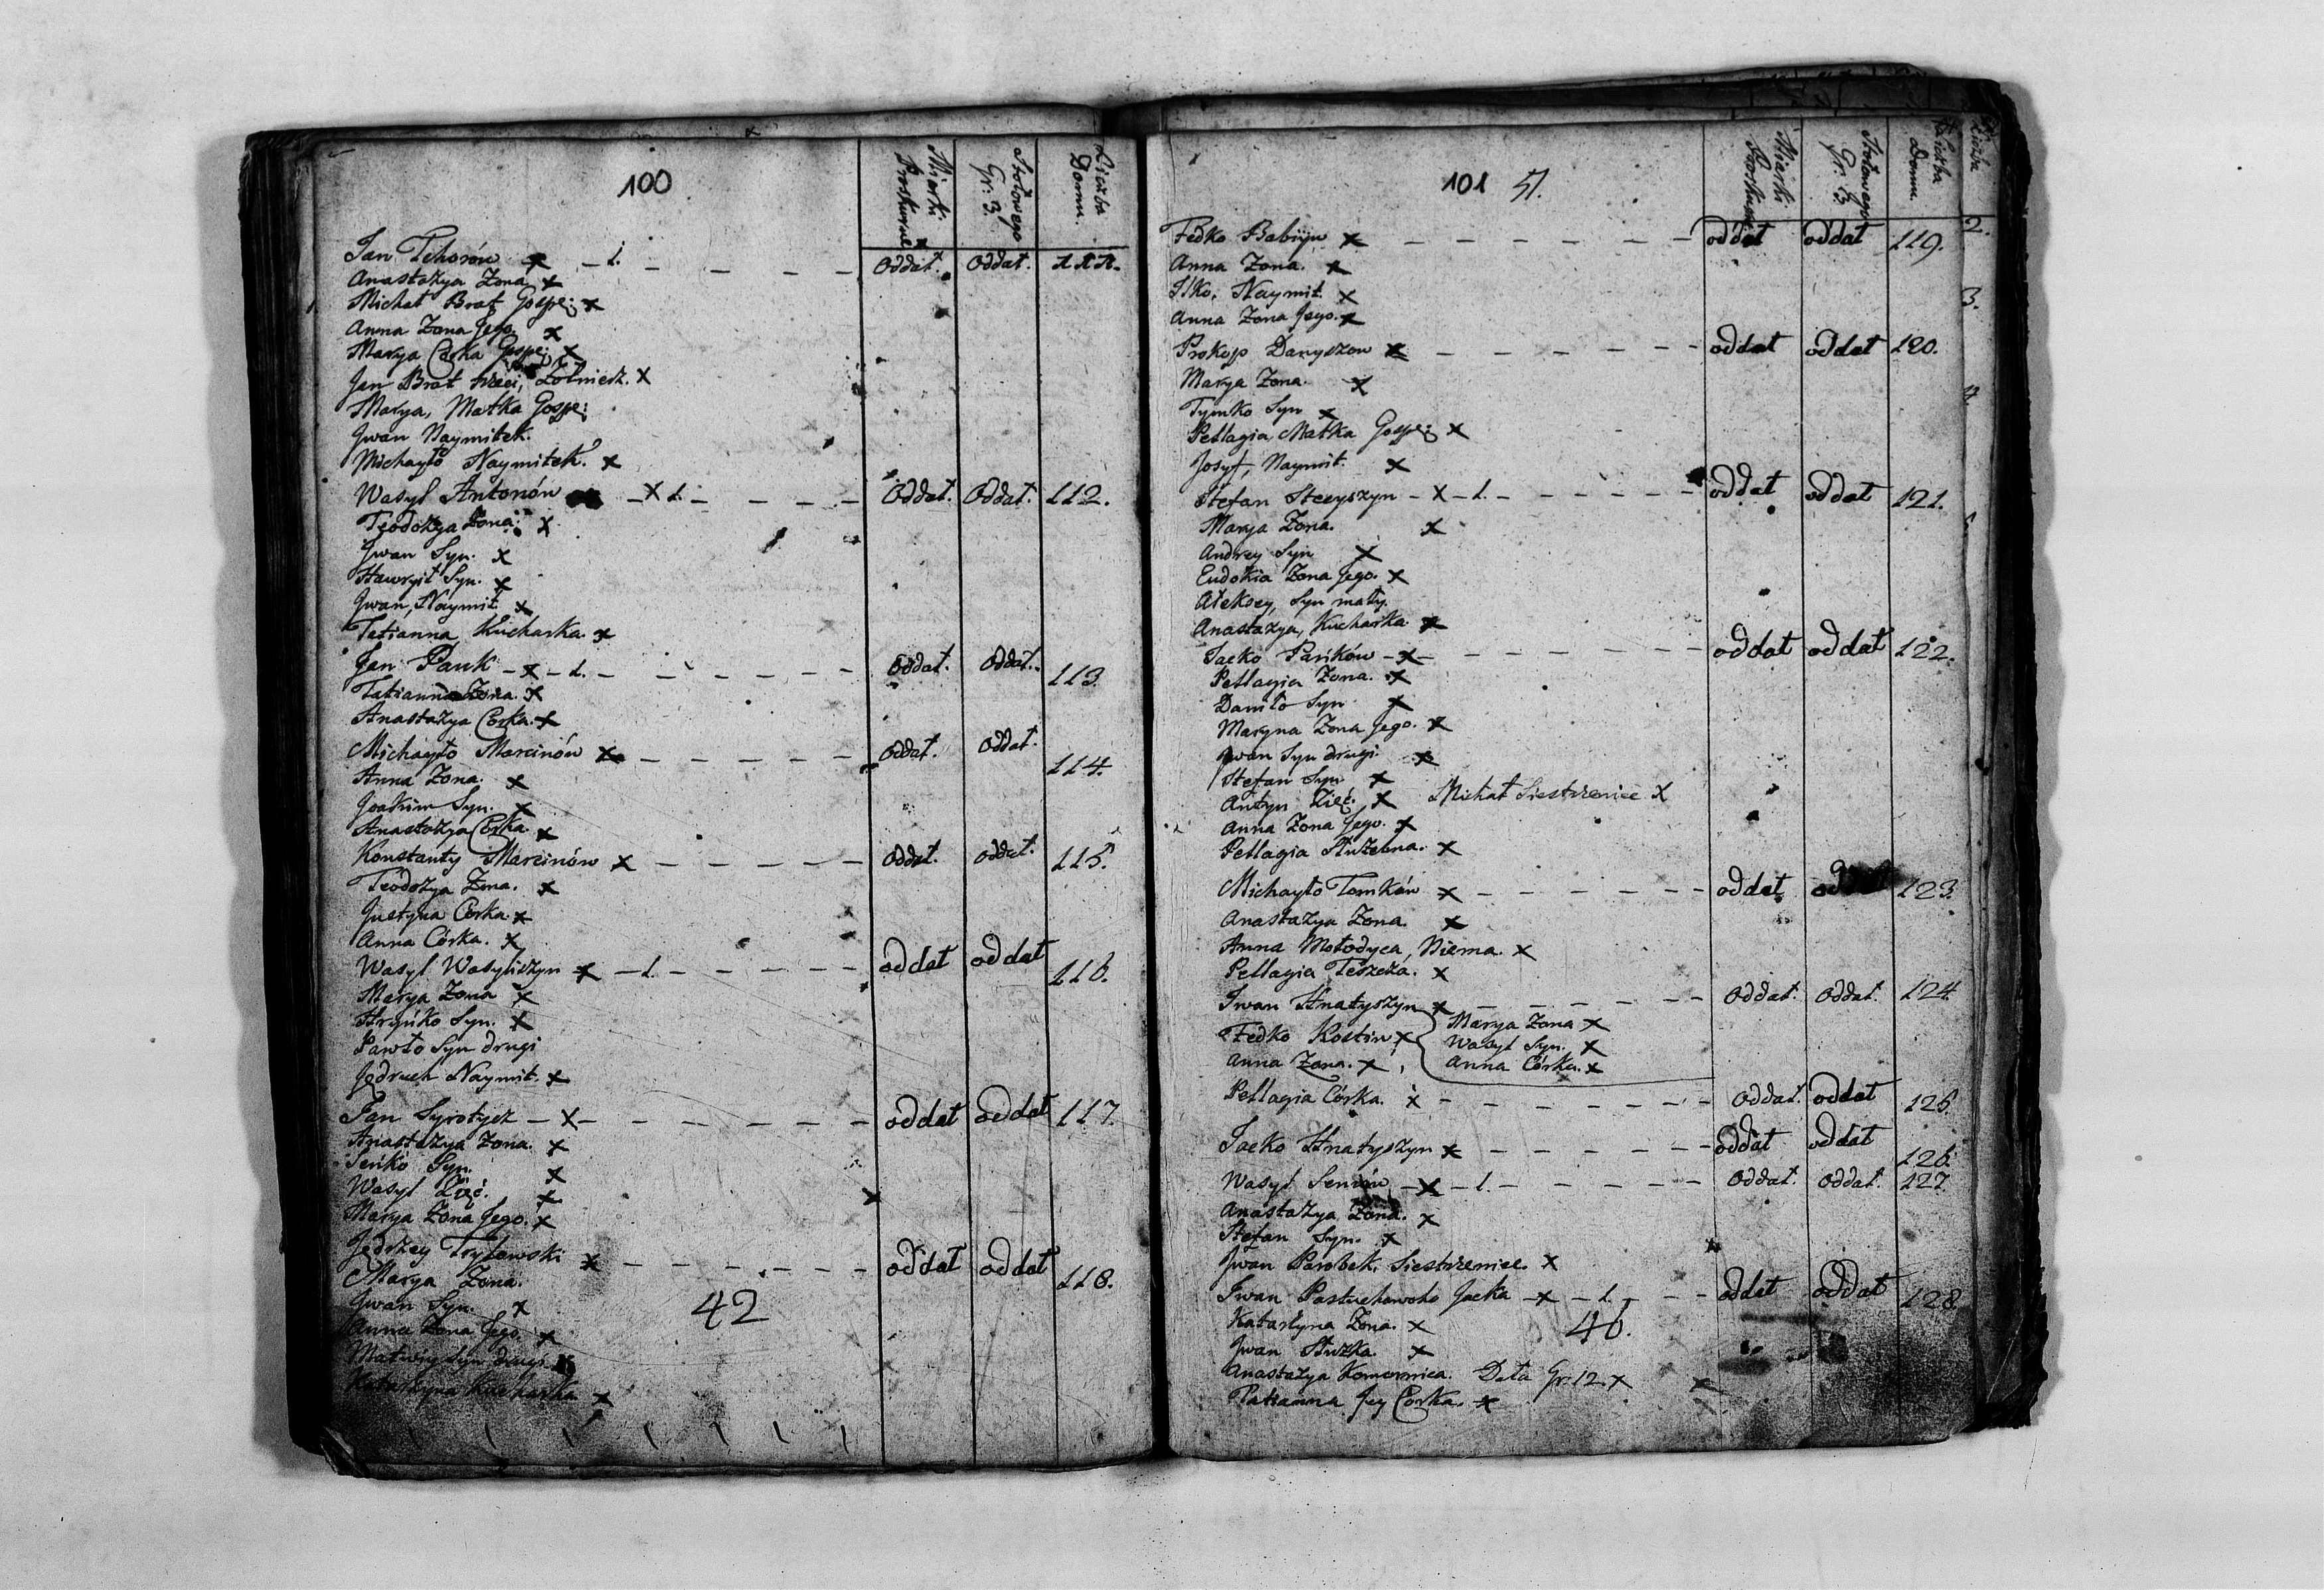 100
Miarki Proskurne
Stołowego Gr: 3.
Liczba Domu.
Jan Tchorów x – 1. – – – – oddał. oddał. 111.
Anastazya Zona x
Michał Brat Gospo: x
Anna Zona Jego. x
Marya Corka Gospo: x
Jan Brat trzeci, Zołnierz. x
Marya, Matka Gospo:
Jwan Naymitek.
Michayło Naymitek. x
Wasyl Antonów – x 1. – – – – oddał. oddał. 112.
Teodozya Zona. x
Jwan Syn. x
Hawryił Syn. x
Jwan, Naymit x
Tatianna, Kucharka. x
Jan Pauk – x – 1. – – – – – oddał. oddał. 113.
Tatianna Zona. x
Anastazya Corka. x
Michayło Marcinów x – – – – – oddał. oddał. 114.
Anna Zona. x
Joakim Syn. x
Anastazya Corka x
Konstanty Marcinów x – – – – – oddał. oddał. 115.
Teodozya Zona. x
Justyna Corka x
Anna Córka. x
Wasyl Wasyliszyn x – 1. – – – – – oddał oddał 116.
Marya Zona x
Hryńko Syn. x
Pawło Syn drugi
Jędruch Naymit. x
Jan Syrotycz – x – – – – – – oddał oddał 117.
Anastazya Zona. x
Seńko Syn. x
Wasyl Zięć. x
Marya Zona Jego. x
Jędrzey Trylowski x – – – – – – oddał oddał 118.
Marya Zona.
Jwan Syn. x
42
Anna Zona Jego x
Matwiy Syn drugi x
Katarzyna Kucharka x
101 51.
Miarki Proskurne
Stołowego Gr: 3
Liczba Domu
Liczba
Fedko Babiyn x – – – – – – – oddał oddał 119.
Anna Zona. x
Ilko, Naymit. x
Anna Zona Jego. x
Prokop Danyszow x – – – – – – oddał oddał 120.
Marya Zona. x
Tymko Syn x
Pellagia Matka Gospo: x
Josyf, Naymit. x
Stefan Stecyszyn – x – 1. – – – – – – oddał oddał 121.
Marya Zona. x
Andrey Syn x
Eudokia Zona Jego. x
Aleksey, Syn mały.
Anastazya, Kucharka x
Jacko Pańków – x – – – – – – – oddał oddał 122.
Pellagia Zona. x
Daniło Syn x
Maryna Zona Jego. x
Jwan Syn drugi x
Stefan Syn x
Antyn Zięć. x Michał Siestrzeniec x
Anna Zona Jego. x
Pellagia Służebna. x
Michayło Tomków x – – – – – – oddał oddał 123.
Anastazya Zona x
Anna Mołodyca, Niema. x
Pellagia Teszcza. x
Iwan Hnatyszyn x – – – – – – oddał. oddał. 124.
Marya Zona x
Fedko Kostiw x Wasyl Syn. x
Anna Zona. x Anna Córka. x
Pellagia Córka. x – – – – – – – oddał. oddał 125.
Jacko Hnatyszyn x – – – – – – oddał oddał 126.
Wasyl Seniów – x – 1. – – – – – oddał. oddał. 127.
Anastazya Zona. x
Stefan Syn. x
Jwan Parobek, Siestrzeniec. x
Iwan Pastuchowoho Jacka – x – 1. – – – oddał oddał 128.
Katarzyna Zona. x
46.
Jwan Służka. x
Anastazya Komornica. Dała Gr: 12. x
Tatianna Jey Corka. x